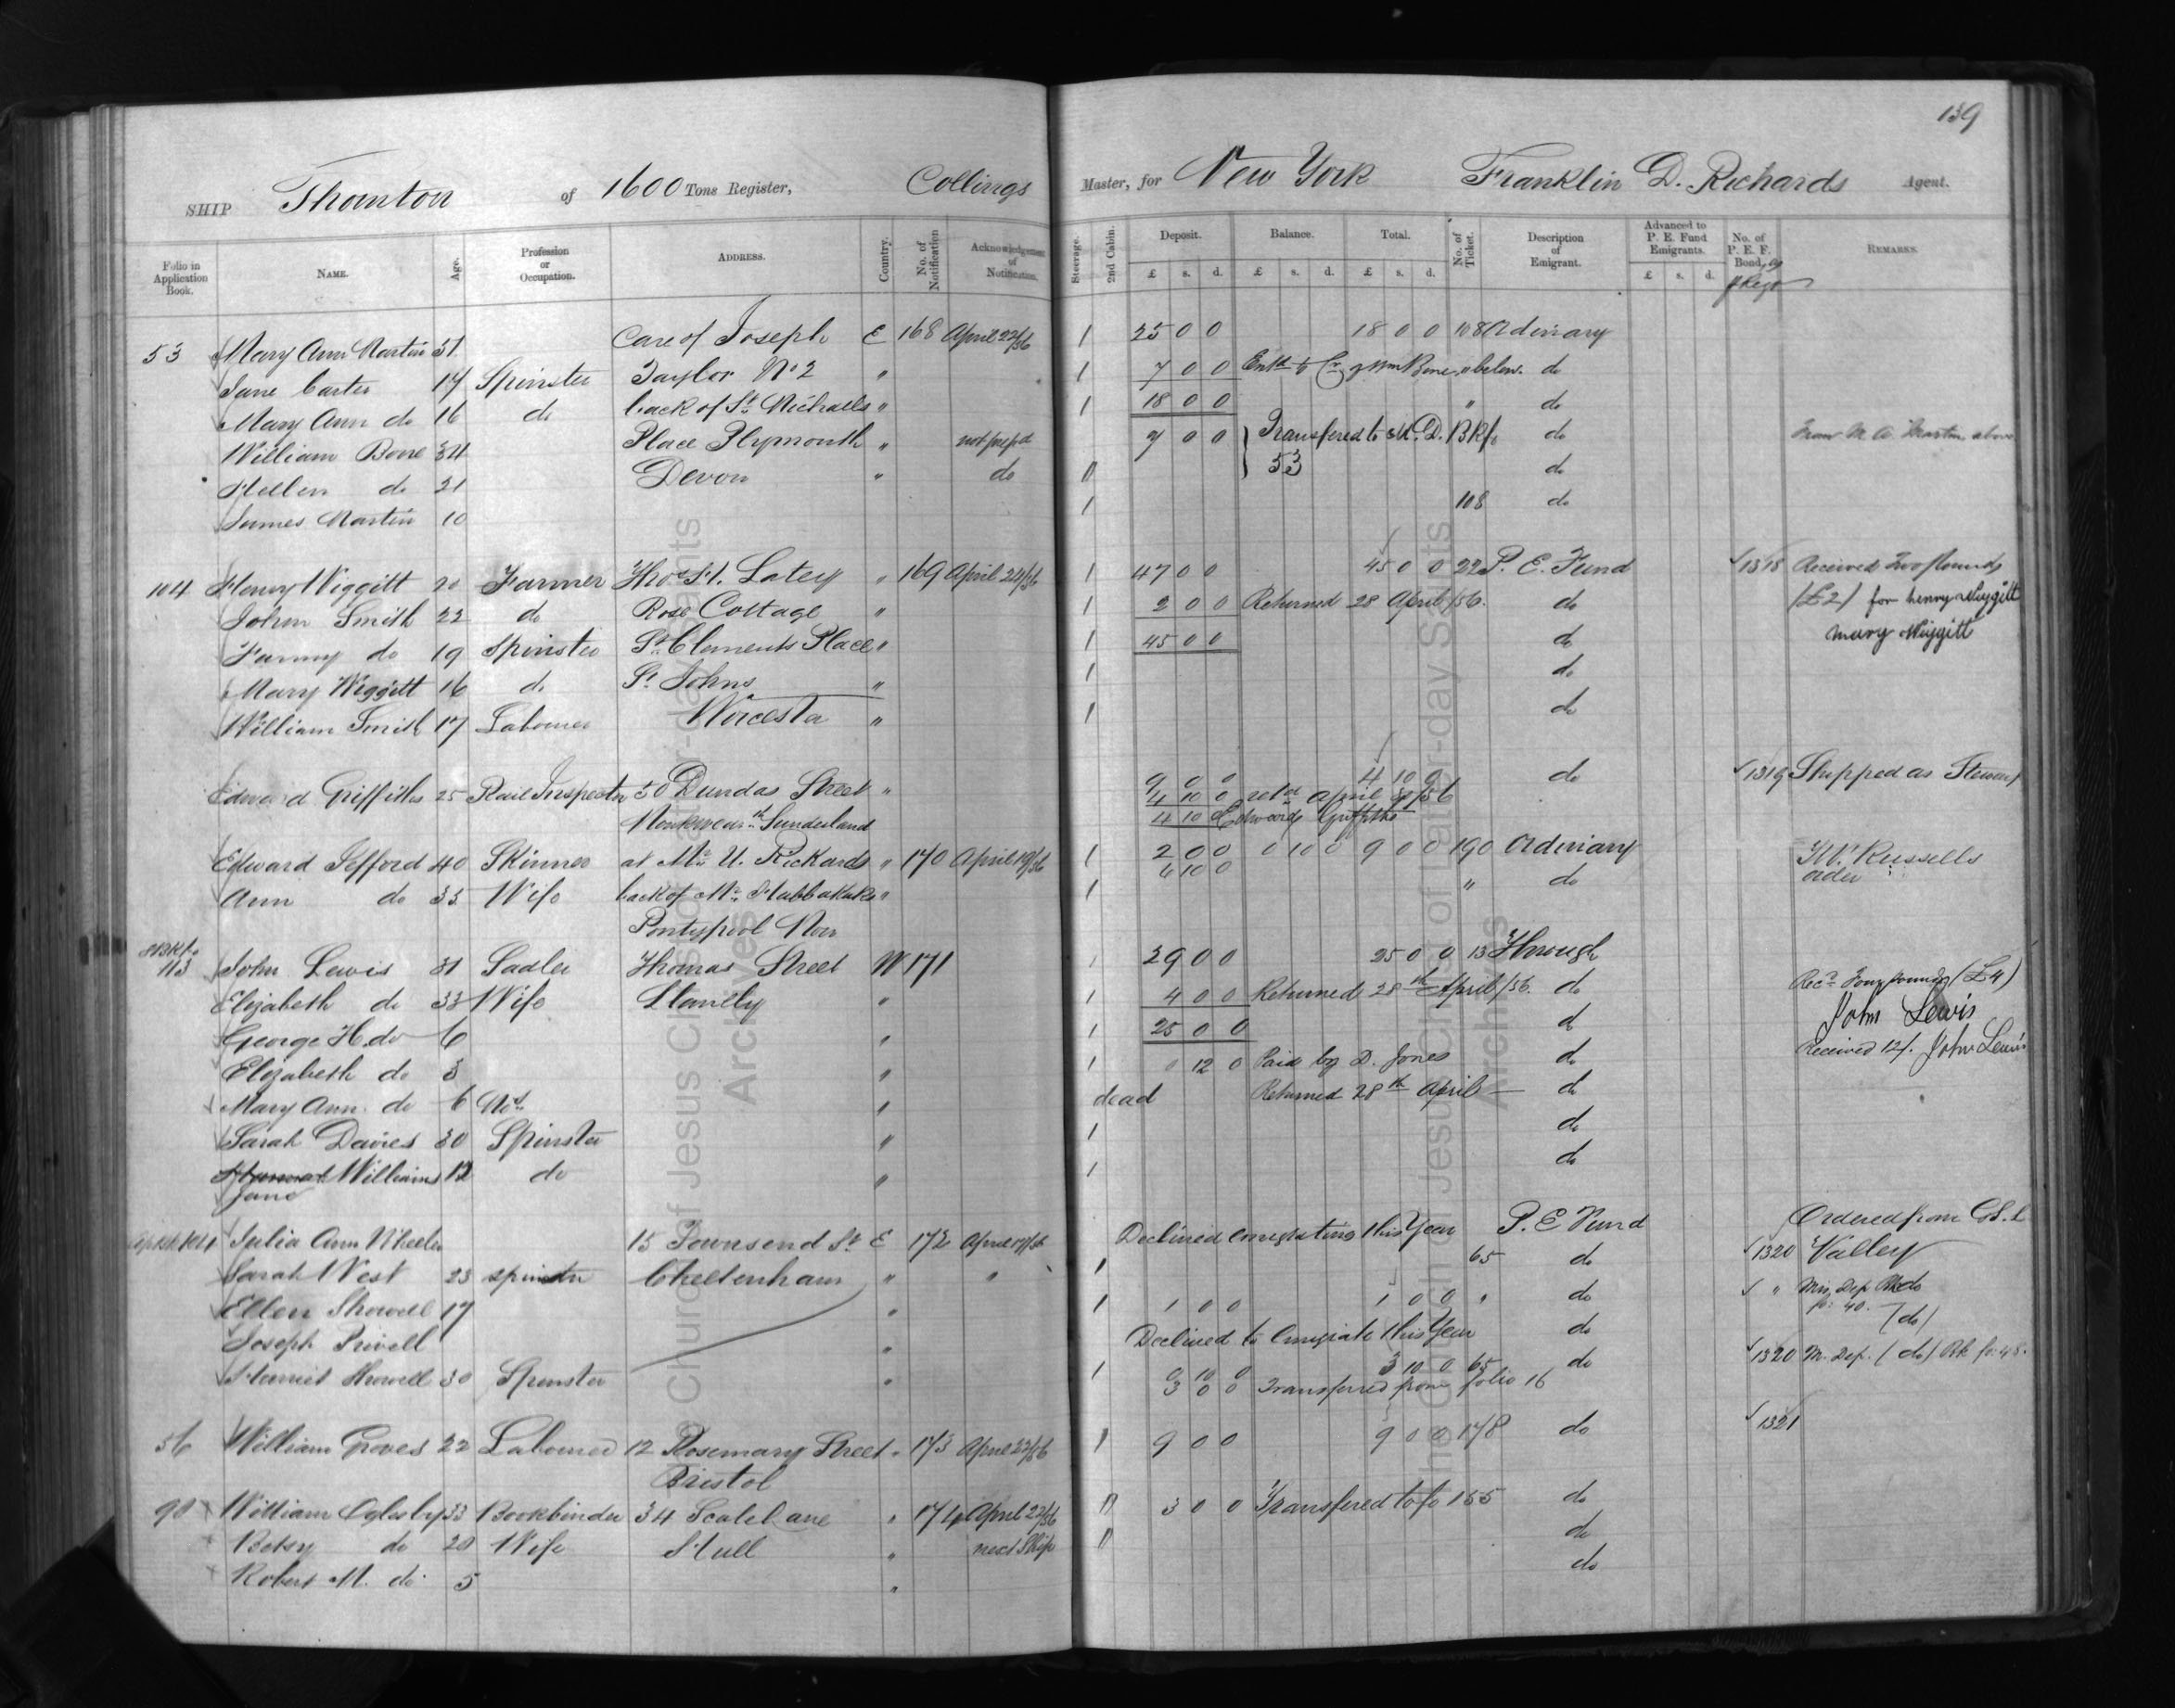 139
SHIP Thornton of 1600 Tons Register, Collings Master, for New York Franklin D. Richards Agent.
Folio in Application Book. NAME. Age. Profession or Occupation. ADDRESS. Country. No. of Notification Acknowledgement of Notification. Steerage. 2nd Cabin. Deposit. £ s. d. Balance. £ s. d. Total. £ s. d. No. of Ticket. Description of Emigrant. Advanced to P. E. Fund Emigrants. £ s. d. No. of P. E. F. Bond, REMARKS.
53 Mary Ann Martin 37 Care of Joseph E 168 April 22/56 1 25 0 0 18 0 0 108 Ordinary
Jane Carter 17 Spinster Taylor No 2 " 1 7 0 0 Wm Bone below. do
Mary Ann do 16 do back of St Michaels " 1 18 0 0 " do
William Bone 34 Place Plymouth " not prepd 7 0 0 Transfered to M. D. Bk fo do From M A Martin above
Hellen do 21 Devon " do 11 53 do
James Martin 10 1 108 do
104 Henry Wiggitt 20 Farmer Thos H. Latey " 169 April 24/56 1 47 0 0 45 0 0 22 P. E. Fund 1318 Received Two Pounds
John Smith 22 do Rose Cottage " 1 2 0 0 Returned 28 April /56. do (£2) for henry Wiggitt
Fanny do 19 Spinster St Clements Place " 1 45 0 0 do mary Wiggitt
Mary Wiggitt 16 do St Johns " 1 do
William Smith 17 Labourer Worcester " 1 do
Edward Griffiths 25 Rail Inspector 50 Dundas Street " 9 0 0 4 10 0 do 1319 Shipped as Steward
4 10 0 retd April /56
Monkwearth Sunderland 4 10 0 Edward Griffiths
Edward Jefford 40 Skinner at Mr U. Rickards " 170 April 19/56 1 2 0 0 0 10 0 9 0 0 190 Ordinary W. Russells
4 10 0 order
Ann do 35 Wife back of Mr " 1 " do
Pontypool Mon
113 John Lewis 31 Sadler Thomas Street W 171 1 29 0 0 25 0 0 13 Through
Elizabeth do 33 Wife Llanelly " 1 4 0 0 Returned 28th April /56. do Recd Four pounds (£4)
George H. do 6 " 1 25 0 0 do John Lewis
Elizabeth do 3 " 1 0 12 0 Paid by D. Jones do Received 12/. John Lewis
Mary Ann do 6 Mos " dead Returned 28th April do
Sarah Davies 30 Spinster " 1 do
Hannah Williams 12 do " 1 do
Jane
Julia Ann Wheeler 15 Townsend St E 172 April 19/56 Declined emigrating this Year P. E Fund Ordered from G S. L
Sarah West 23 spinster Cheltenham " " 1 65 do 1320 Valley
Ellen Showell 17 " 1 1 0 0 1 0 0 " do " Mis, Dep Bk do
fo: 40. (do)
Joseph Privell " Declined to Emigrate this Year do
Harriet Showell 30 Spinster " 1 0 10 0 3 10 0 65 do 1320 M. Dep. (do) Bk fo: 48.
3 0 0 Transferred from folio 16
56 William Groves 22 Labourer 12 Rosemary Street " 173 April 22/56 1 9 0 0 9 0 0 178 do 1321
Bristol
90 William Oglesby 33 Bookbinder 34 Scale Lane " 174 April 22/56 11 3 0 0 Transfered to fo 155 do
Betsy do 20 Wife Hull " next Ship 11 do
Robert M. do 5 " do
The Church of Jesus Christ of Latter-day Saints
Archives
The Church of Jesus Christ of Latter-day Saints
Archives